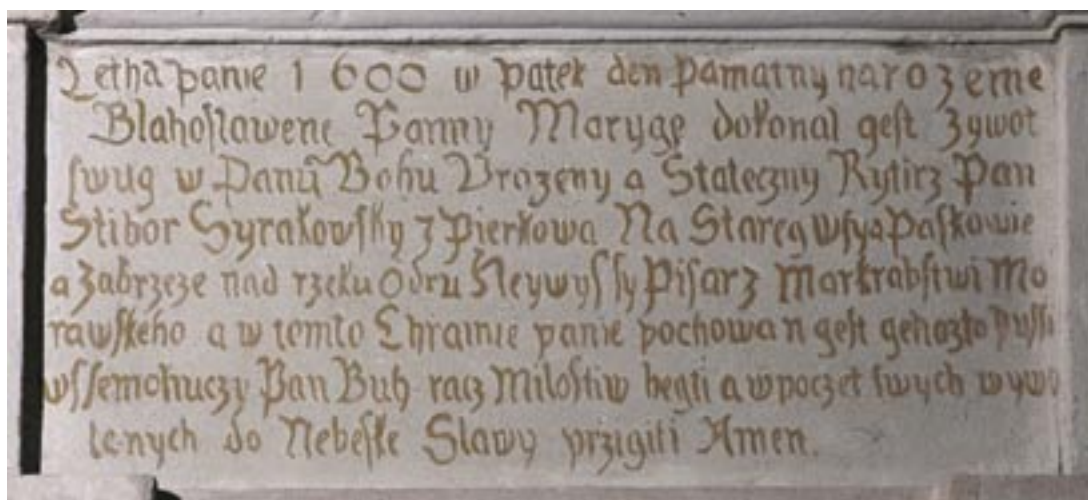 Letha panie 1600 w patek den pamatny narozeme
Blahoslawene Panny Maryge dokonal gest zywot
swug w Panu Bohu Vrozeny a Stateczny Rytirz Pan
Stibor Syrakowsky z Pierkowa Na Stareg wsy a Paskowie
a Zabrzeze nad rzeku Odru Neywyssy Pisarz Markrabstwi Mo
rawskeho a w temto Chramie panie pochowan gest gehozto Dussi
wssemohuczy Pan Buh racz Milostiw beyti a w poczet swych wywo
lenych do Nebeske Slawy przigiti Amen.